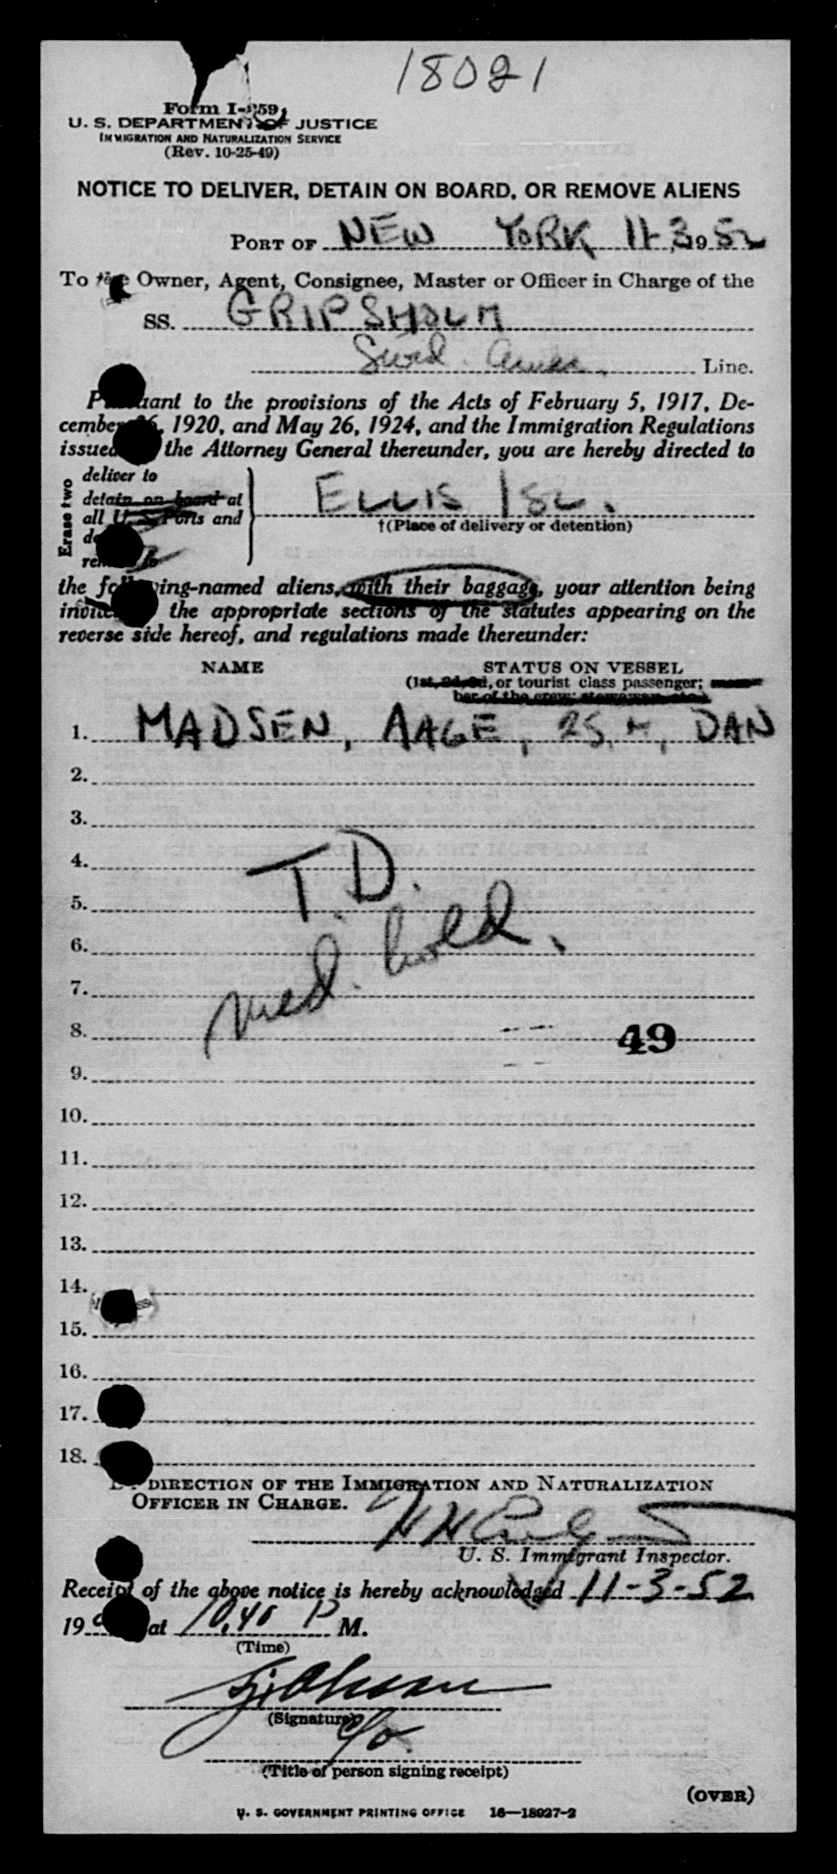 18021
Form I-259
U. S. DEPARTMENT OF JUSTICE
IMMIGRATION AND NATURALIZATION SERVICE
(Rev. 10-25-49)
NOTICE TO DELIVER, DETAIN ON BOARD, OR REMOVE ALIENS
PORT OF NEW YORK 11-3, 1952
To the Owner, Agent, Consignee, Master or Officer in Charge of the
SS. GRIPSHOLM
Swed. Amer. Line.
Pursuant to the provisions of the Acts of February 5, 1917, De-
cember 26, 1920, and May 26, 1924, and the Immigration Regulations
issued the Attorney General thereunder, you are hereby directed to
Erase two
deliver to
detain on board at
all U. S. Ports and
ELLIS ISL.
†(Place of delivery or detention)
the following-named aliens, with their baggage, your attention being
invited the appropriate sections of the statutes appearing on the
reverse side hereof, and regulations made thereunder:
NAME STATUS ON VESSEL
(1st, 2d, 3d, or tourist class passenger; mem-
ber of the crew; stowaway, etc.)
1. MADSEN, AAGE, 25, M, DAN
2.
3.
4.
T.D.
5.
6.
med. hold.
7.
8. 49
9.
10.
11.
12.
13.
14.
15.
16.
17.
18.
DIRECTION OF THE IMMIGRATION AND NATURALIZATION
OFFICER IN CHARGE.
U. S. Immigrant Inspector.
Receipt of the above notice is hereby acknowledged 11-3-52
19 at 10,40 P M.
(Time)
(Signature)
c/o
(Title of person signing receipt)
(OVER)
U. S. GOVERNMENT PRINTING OFFICE 16—18027-2